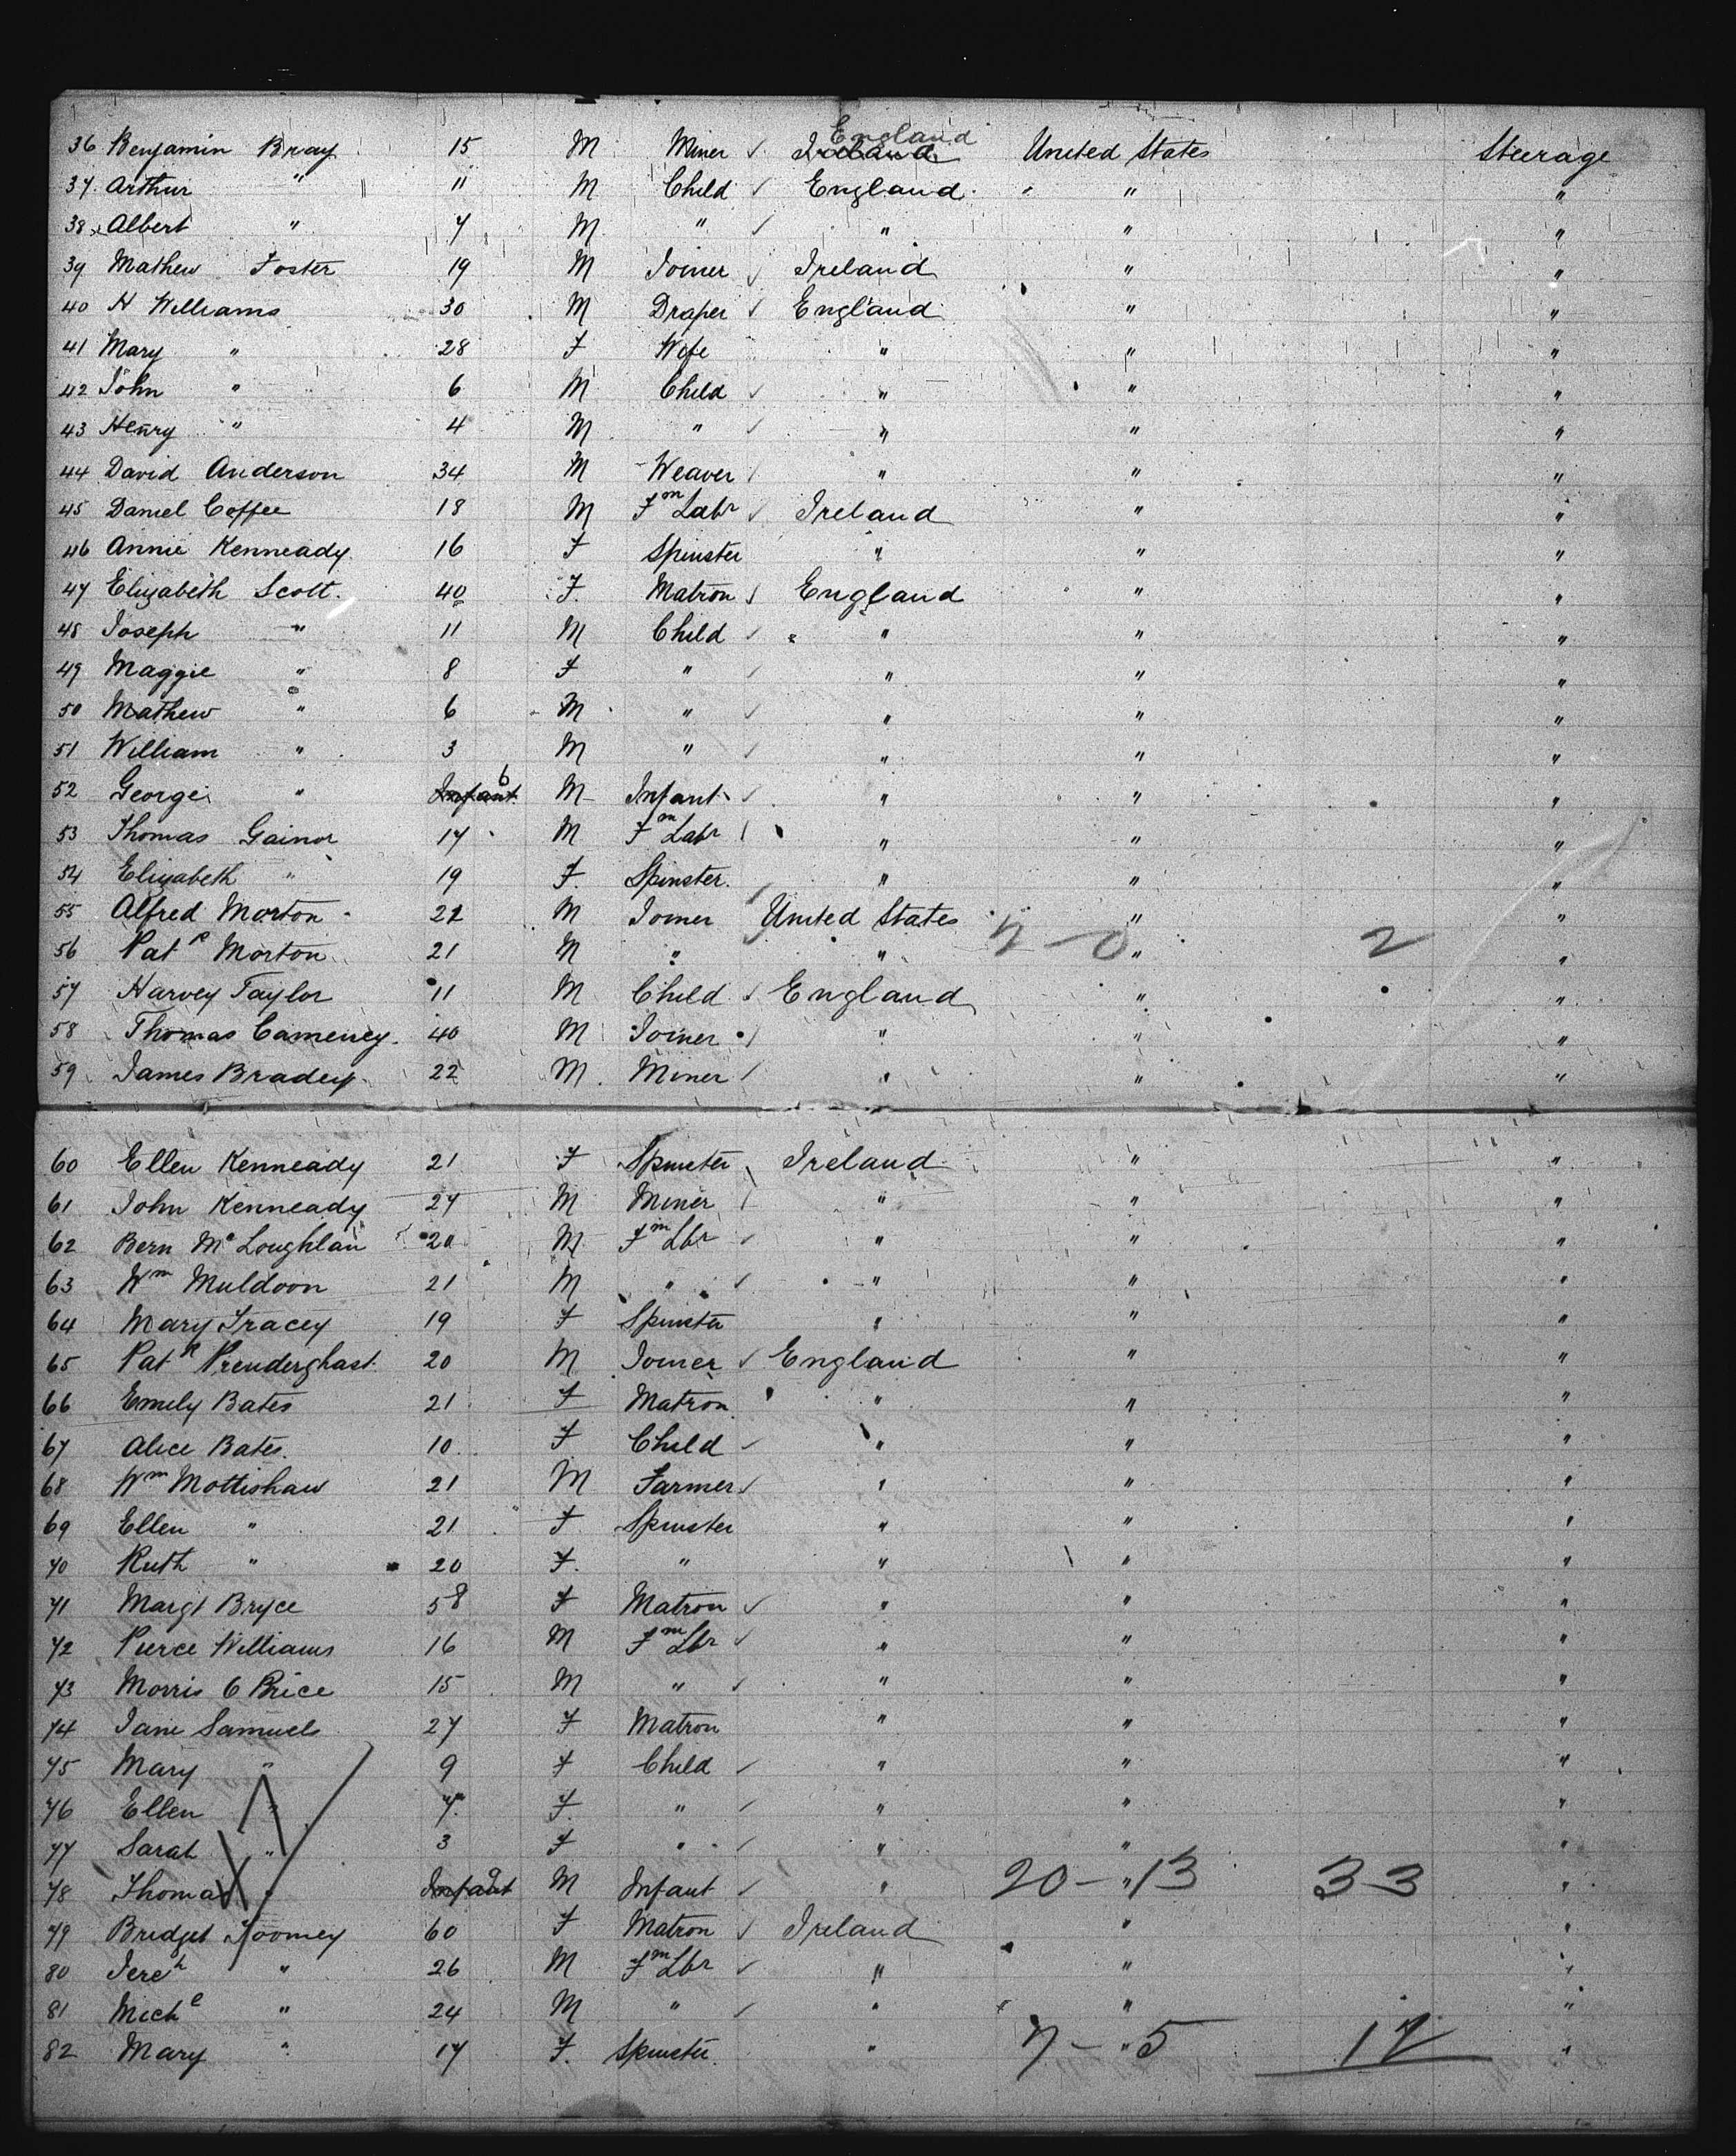 36 Benjamin Bray 15 M Miner ✓ Ireland England United States Steerage
37 Arthur " 11 M Child ✓ England " "
38 Albert " 7 M " ✓ " " "
39 Mathew Foster 19 M Joiner ✓ Ireland " "
40 H Williams 30 M Draper ✓ England " "
41 Mary " 28 F Wife " " "
42 John " 6 M Child ✓ " " "
43 Henry " 4 M " ✓ " " "
44 David Anderson 34 M Weaver " " "
45 Daniel Coffee 18 M Fm Labr ✓ Ireland " "
46 Annie Kenneady 16 F Spinster " " "
47 Elizabeth Scott. 40 F. Matron ✓ England " "
48 Joseph " 11 M Child ✓ " " "
49 Maggie " 8 F " ✓ " " "
50 Mathew " 6 M " ✓ " " "
51 William " 3 M " ✓ " " "
52 George " Infant 6 M Infant ✓ " " "
53 Thomas Gainor 17 M Fm Labr " " "
54 Elizabeth " 19 F. Spinster. " " "
55 Alfred Morton M Joiner United States " "
56 Patk Morton 21 M " " " 2 "
57 Harvey Taylor 11 M Child ✓ England " "
58 Thomas 40 M Joiner " " "
59 James Bradey 22 M. Miner " " "
60 Ellen Kenneady 21 F Spinster Ireland " "
61 John Kenneady 24 M Miner " " "
62 Bern Mc Loughlan 20 M Fm Lbr ✓ " " "
63 Wm Muldoon 21 M " ✓ " " "
64 Mary Tracey 19 F Spinster " " "
65 Patk Prenderghast 20 M Joiner ✓ England " "
66 Emily Bates 21 F Matron " " "
67 Alice Bates 10 F Child ✓ " " "
68 Wm Mottishaw 21 M Farmer ✓ " " "
69 Ellen " 21 F Spinster " " "
70 Ruth " 20 F. " " " "
71 Margt Bryce 58 F Matron ✓ " " "
72 Pierce Williams 16 M Fm Lbr ✓ " " "
73 Morris O Price 15 M " ✓ " " "
74 Jane Samuels 27 F Matron " " "
75 Mary " 9 F Child ✓ " " "
76 Ellen " 7 F. " ✓ " " "
77 Sarah " 3 F " ✓ " " "
78 Thomas " Infant 9 M Infant ✓ " " 20-13 33 "
79 Bridget Toomey 60 F Matron ✓ Ireland " "
80 Jereh " 26 M Fm Lbr ✓ " " "
81 Michl " 24 M " ✓ " " "
82 Mary " 17 F. Spinster. " " 7-5 12 "